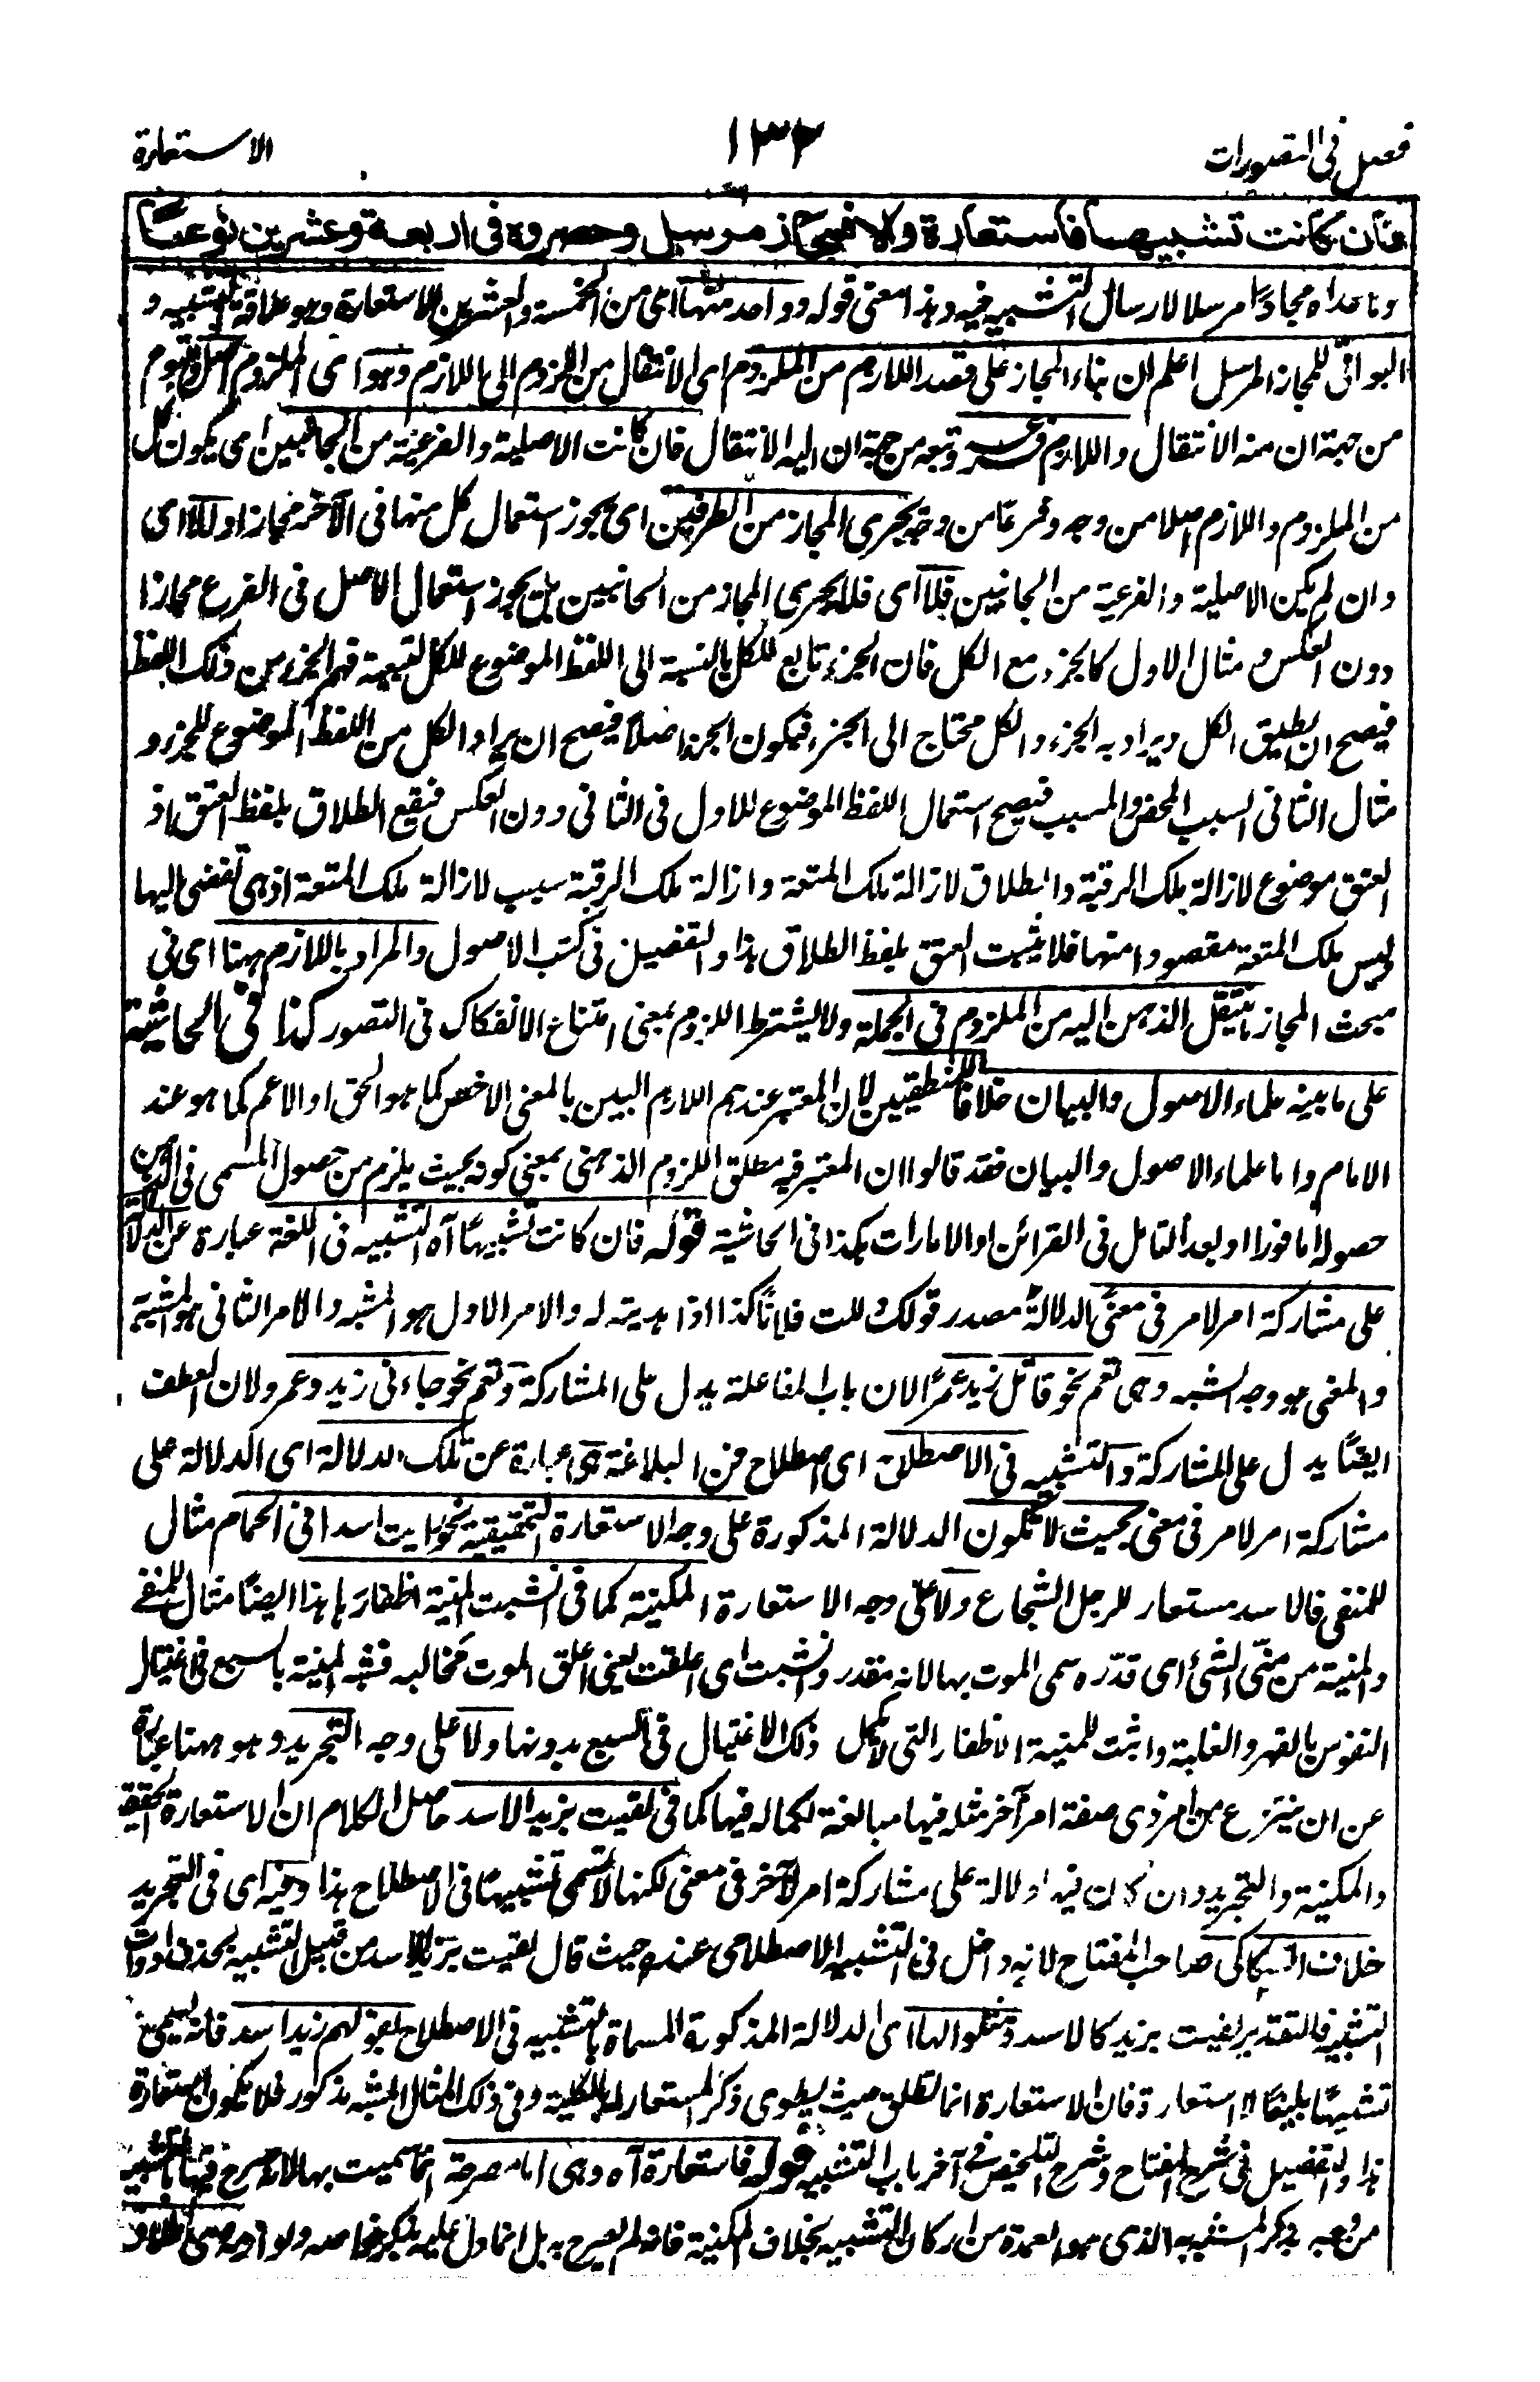 فصل فى التصورات
١٣٣
الاستعارة
فان كانت تشبيها فاستعارة والا فمجاز مرسل وحصروه فى اربعة وعشرين نوعا
وما عداه مجازا مرسلا لارسال التشبيه فيه وهذا معنى قوله وواحد منها اى من الخمسة والعشرين للاستعارة وهو علاقة التشبيه و
البواقى للمجاز المرسل اعلم ان بناء المجاز على قصد اللازم من الملزوم اى الانتقال من الملزوم الى اللازم وهو اى الملزوم اصل ومتبوع
من جهة ان منه الانتقال واللازم فرع وتبع من جهة ان اليه الانتقال فان كانت الاصلية والفرعية من الجانبين اى يكون كل
من الملزوم واللازم اصلا من وجه وفرعا من وجه يجرى المجاز من الطرفين اى يجوز استعمال كل منها فى الآخر مجازا والا اى
وان لم يكن الاصلية والفرعية من الجانبين فلا اى فلا يجرى المجاز من الجانبين بل يجوز استعمال الاصل فى الفرع مجازا
دون العكس مثال الاول كالجزء مع الكل فان الجزء تابع للكل بالنسبة الى اللفظ الموضوع للكل لتبعية فهم الجزء من ذلك اللفظ
فيصح ان يطلق الكل ويراد به الجزء والكل محتاج الى الجزء فيكون الجزء اصلا فيصح ان يراد الكل من اللفظ الموضوع للجزء و
مثال الثانى السبب المحض والمسبب فيصح استعمال اللفظ الموضوع للاول فى الثانى دون العكس فيقع الطلاق بلفظ العتق اذ
العتق موضوع لازالة ملك الرقبة والطلاق لازالة ملك المتعة وازالة ملك الرقبة سبب لازالة ملك المتعة اذ هى تفضى اليها
وليس ملك المتعة مقصودا منها فلا يثبت العتق بلفظ الطلاق هذا والتفصيل فى كتب الاصول والمراد باللازم ههنا اى فى
مبحث المجاز ما ينتقل الذهن اليه من الملزوم فى الجملة ولا يشترط اللزوم بمعنى امتناع الانفكاك فى التصور كذا فى الحاشية
على ما بينه علماء الاصول والبيان خلافا للمنطقيين لان المعتبر عندهم اللازم البين بالمعنى الاخص كما هو الحق او الاعم كما هو عند
الامام واما علماء الاصول والبيان فقد قالوا ان المعتبر فيه مطلق اللزوم الذهنى بمعنى كونه بحيث يلزم من حصول المسمى فى الذهن
حصوله اما فورا او بعد التامل فى القرائن او الامارات هكذا فى الحاشية قوله فان كانت تشبيها آه التشبيه فى اللغة عبارة عن الدلالة
على مشاركة امر لامر فى معنى الدلالة مصدر قولك دللت فلانا كذا اذا هديته له والامر الاول هو المشبه والامر الثانى هو المشبه به
والمعنى هو وجه الشبه وهى تعم نحو قاتل زيد عمرا لان باب المفاعلة يدل على المشاركة وتعم نحو جاءنى زيد وعمرو لان العطف
ايضا يدل على المشاركة والتشبيه فى الاصطلاح اى اصطلاح فن البلاغة هى عبارة عن تلك الدلالة اى الدلالة على
مشاركة امر لامر فى معنى بحيث لا تكون الدلالة المذكورة على وجه الاستعارة التحقيقية نحو رايت اسدا فى الحمام مثال
للمنفى فالاسد مستعار للرجل الشجاع ولا على وجه الاستعارة المكنية كما فى انشبت المنية اظفارها هذا ايضا مثال للمنفى
والمنية من منى الشئ اى قدره سمى الموت بها لانه مقدر وانشبت اى اعلقت يعنى اعلق الموت مخالبه فشبه المنية بالسبع فى اغتيال
النفوس بالقهر والغلبة واثبت للمنية الاظفار التى لا يكمل ذلك الاغتيال فى السبع بدونها ولا على وجه التجريد وهو ههنا عبارة
عن ان ينتزع من امر ذى صفة امر آخر مثله فيها مبالغة لكماله فيها كما فى لقيت بزيد الاسد حاصل الكلام ان الاستعارة التحقيقية
والمكنية والتجريد وان كان فيها دلالة على مشاركة امر لآخر فى معنى لكنها لا تسمى تشبيها فى الاصطلاح هذا وفيه اى فى التجريد
خلاف السكاكى صاحب المفتاح لانه داخل فى التشبيه الاصطلاحى عنده حيث قال لقيت بزيد الاسد من قبيل التشبيه بحذف ادوات
التشبيه فالتقدير لقيت بزيد كالاسد ومثلوا لها اى الدلالة المذكورة المسماة بالتشبيه فى الاصطلاح بقولهم زيد اسد فانه يسمى
تشبيها بليغا لا استعارة فان الاستعارة انما تطلق حيث يطوى ذكر المستعار له بالكلية وفى ذلك المثال المشبه مذكور فلا يكون استعارة
هذا والتفصيل فى شرح المفتاح وشرح التلخيص فى آخر باب التشبيه قوله فاستعارة آه وهى اما مصرحة انما سميت بها لانه صرح فيها بالتشبيه
بذكر المشبه به الذى هو العمدة من اركان التشبيه بخلاف المكنية فانه لم يصرح به بل انما دل عليه بذكر خواصه ولوازمه